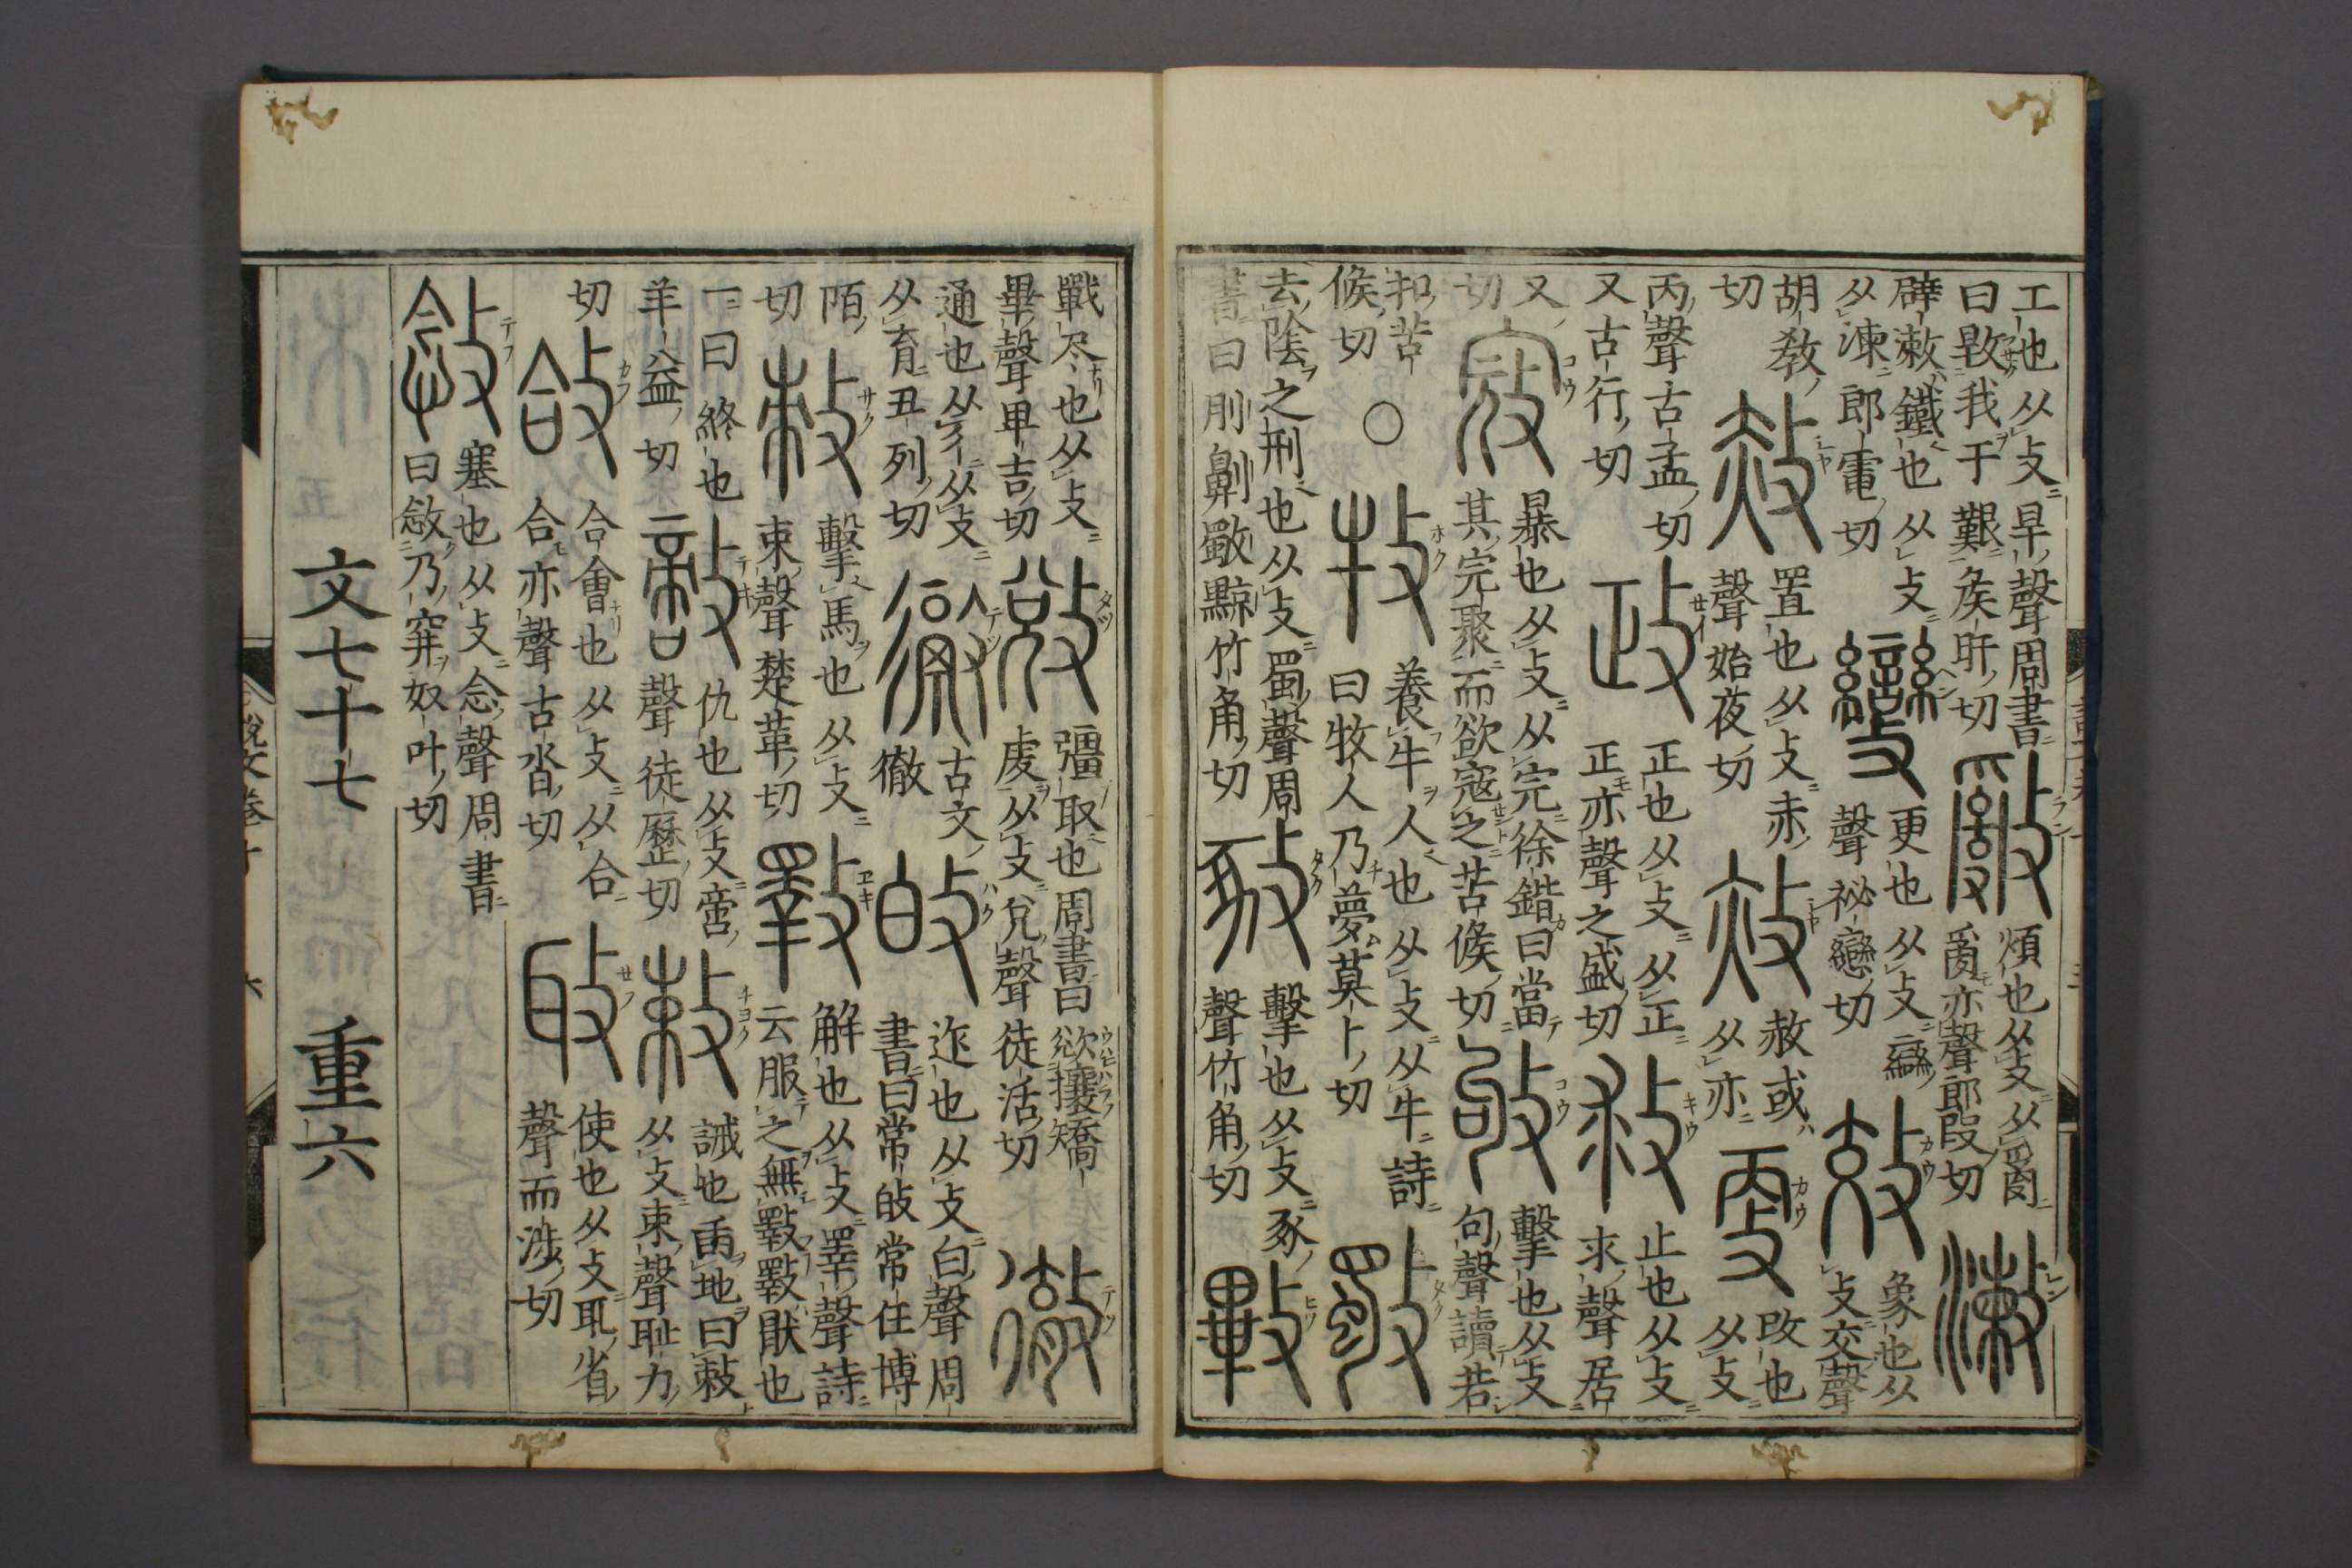 工也从攴旱聲周書
曰敤我于艱矦旰切
煩也从攴从𤔔
𤔔亦聲郎段切
辟漱鐵也从攴
从湅郎電切
變
更也从攴䜌
聲祕戀切
效
象也从
攴交聲
胡教
切
赦
置也从攴赤
聲始夜切
赦或
从亦
更
改也
从攴
丙聲古孟切
又古行切
政
正也从攴从正
正亦聲之盛切
救
止也从攴
求聲居
又
切
寇
暴也从攴从完徐鍇曰當
其完聚而欲寇之苦候切
敂
擊也从攴
句聲讀若
扣苦
候切
○
牧
養牛人也从攴从牛詩
曰牧人乃夢莫卜切
斀
去陰之刑也从攴蜀聲周
書曰刖劓斀黥竹角切
擊也从攴豖
聲竹角切
戰尽也从攴
畢聲卑吉切
敚
彊取也周書曰敚攘矯
虔从攴兌聲徒活切
徹
通也从彳从攴
从育丑列切
古文
徹
敀
迮也从攴白聲周
書曰常敀常任博
陌
切
擊馬也从攴
朿聲楚革切
斁
解也从攴睪聲詩
云服之無斁斁猒也
一曰終也
羊益切
敵
仇也从攴啻
聲徒歷切
敕
誡也臿地曰敕
从攴束聲恥力
切
敆
合會也从攴从合
合亦聲古沓切
使也从攴耴省
聲而涉切
敜
塞也从攴念聲周書
曰敜乃穽奴叶切
文七十七 重六